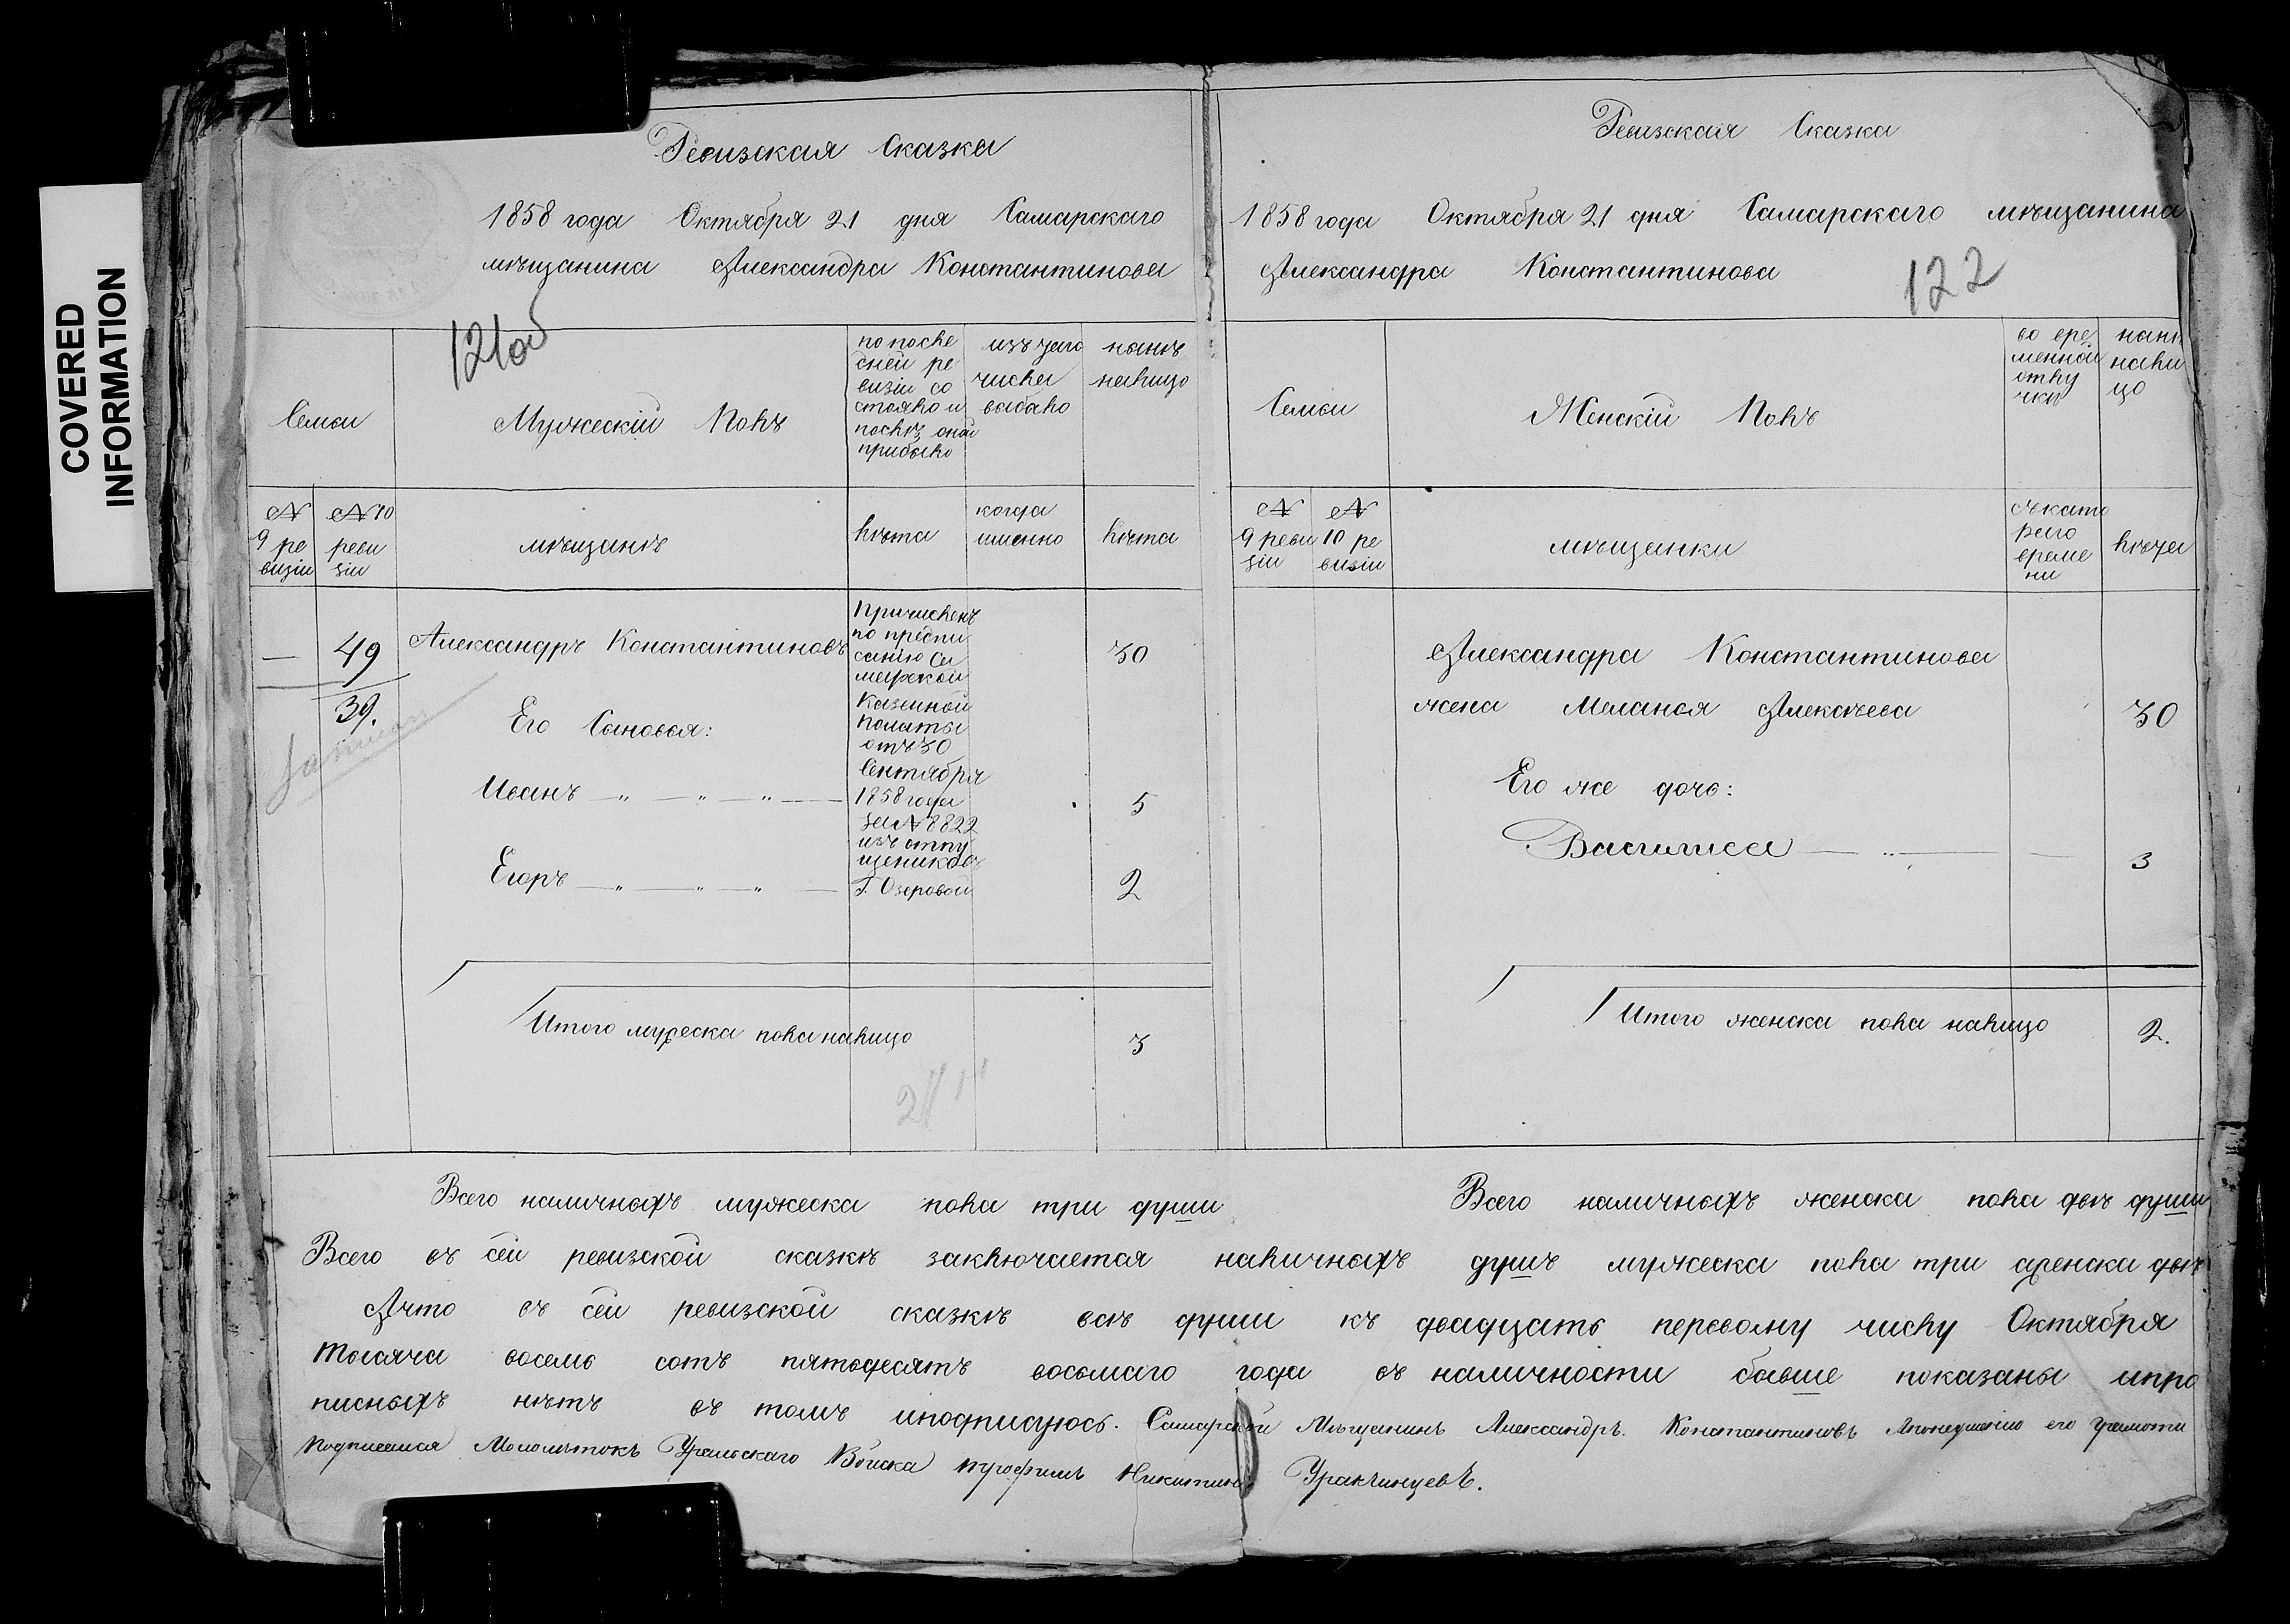 COVERED
INFORMATION
Ревизская Сказка
1858 года Октября 21 дня Самарскаго
мѣщанина Александра Константинова
121об
Семьи
Мужескій Полъ
по после
дней ре
визіи со
стояло и
послѣ оной
прибыло
изъ того
числа
выбыло
нынѣ
налицо
№
9 ре
визіи
№ 10
реви
зіи
мѣщанѣ
лѣта
когда
именно
лѣта
—
49
39.
Александръ Константиновъ
Причисленъ
по предпи
санію Са
марской
Казенной
Палаты
отъ 30
Сентября
1858 года
за № 8822
изъ отпу
щениковъ
Г. Озеровой
30
Его Сыновья:
Иванъ — „ — „ — „ —
5
Егоръ — „ — „ — „ —
2
Итого мужеска пола налицо
3
Ревизская Сказка
1858 года Октября 21 дня Самарскаго мѣщанина
Александра Константинова
122
Семьи
Женскій Полъ
во вре
менной
отлу
чкѣ
нынѣ
нали
цо
№
9 реви
зіи
№
10 ре
визіи
мѣщанки
съ кото
раго
време
ни
лѣта
Александра Константинова
жена Меланья Алексѣева
30
Его же дочь:
Василиса — „ —
3
Итого женска пола налицо
2.
Всего наличныхъ мужеска пола три души
Всего наличныхъ женска пола двѣ души
Всего въ сей ревизской сказкѣ заключается наличныхъ душъ мужеска пола три аженска двѣ
Ачто въ сей ревизской сказкѣ всѣ души къ двадцать первому числу Октября
тысяча восемь сотъ пятьдесятъ восьмаго года въ наличности бывше показаны ипро
писныхъ нѣтъ въ томъ иподписуюсь. Самарской Мѣщанинъ Александръ Константиновъ Апонеумѣнию его грамоти
подписался Малолѣтокъ Уральскаго Войска трофимъ Никитинъ Уракчинцевъ.